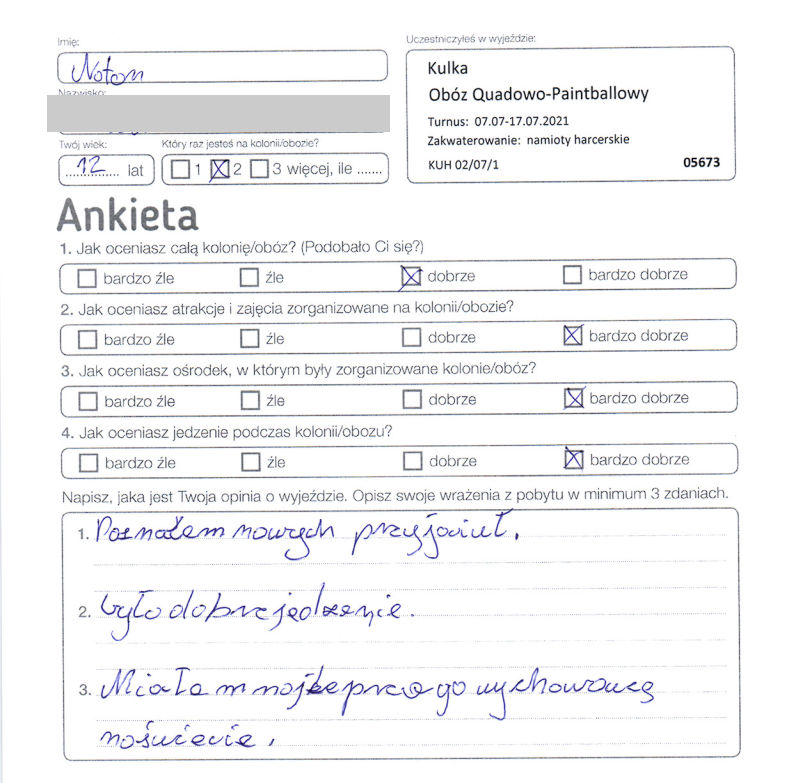 Imię:
Natan
Uczestniczyłeś w wyjeździe:
Kulka
Obóz Quadowo-Paintballowy
Turnus: 07.07-17.07.2021
Zakwaterowanie: namioty harcerskie
KUH 02/07/1 05673
Nazwisko:
Twój wiek: Który raz jesteś na kolonii/obozie?
12 lat 1 2 3 więcej, ile .......
Ankieta
1. Jak oceniasz całą kolonię/obóz? (Podobało Ci się?)
bardzo źle źle dobrze bardzo dobrze
2. Jak oceniasz atrakcje i zajęcia zorganizowane na kolonii/obozie?
bardzo źle źle dobrze bardzo dobrze
3. Jak oceniasz ośrodek, w którym były zorganizowane kolonie/obóz?
bardzo źle źle dobrze bardzo dobrze
4. Jak oceniasz jedzenie podczas kolonii/obozu?
bardzo źle źle dobrze bardzo dobrze
Napisz, jaka jest Twoja opinia o wyjeździe. Opisz swoje wrażenia z pobytu w minimum 3 zdaniach.
1. Poznałem nowych przyjaciuł.
2. było dobre jedzenie.
3. Miałem najleprzego wychowawcę
na świecie.